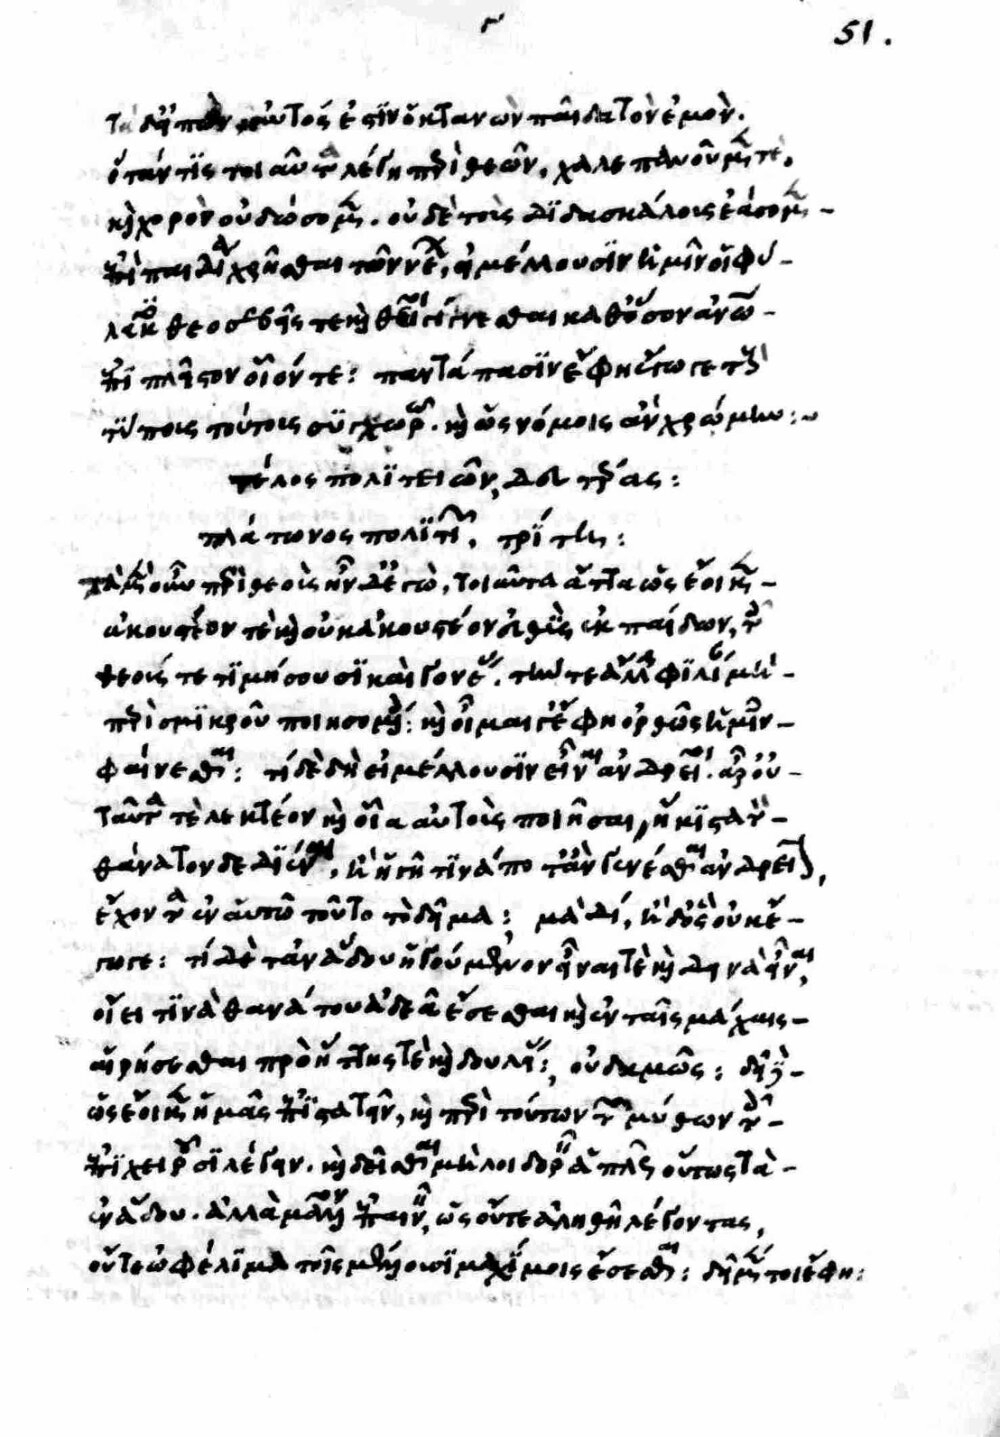 γ 51.
τάδ' εἰπὼν αὐτός ἐστιν ὁ κτανὼν παῖδα τὸν ἐμὸν.
ὅταν τὶς τοιαῦτα λέγη περὶ θεῶν, χαλεπανοῦμέν τὲ,
καὶ χορὸν οὐ δώσομεν. οὐδὲ τοὺς διδασκάλους ἐάσομεν
ἐπὶ παιδεία χρῆσθαι τῶν νέων, εἰ μέλλουσιν ἡμῖν οἱ φύ-
λακες θεοσεβεῖς τε καὶ θεῖοι γίγνεσθαι καθ' ὅσον ἀνθρώπω
ἐπὶ πλεῖστον οἷόν τε: παντάπασιν ἔφη ἔγωγε τοὺς
τύπους τούτους συγχωρῶ. καὶ ὡς νόμοις ἂν χρώμην:
τέλος πολιτειῶν, δευτέρας:
πλάτωνος πολιτεῖαι, τρίτης:
τὰ μὲν οὖν περὶ θεοὺς ἦν δ' ἐγὼ, τοιαῦτα ἄττα ὡς ἔοικεν
ἀκουστέον τὲ καὶ οὐκ ἀκουστέον εὐθὺς ἐκ παίδων, τοῖς
θεούς τε τιμήσουσι καὶ γονέας. τήν τε ἀλλήλων φιλίαν μὴ
περὶ σμικροῦ ποιησομένοις: καὶ οἶμαί γ' ἔφη ὀρθῶς ἡμῖν
φαίνεσθαι: τί δὲ δὴ εἰ μέλλουσιν εἶναι ἀνδρεῖοι. ἆρ' οὐ
ταῦτά τὲ λεκτέον καὶ οἷα αὐτοὺς ποιῆσαι, ἥκιστα τὸν
θάνατον δεδιέναι, ἢ ἡγῆ τινά ποτ' ἂν γενέσθαι ἀνδρεῖον,
ἔχοντα ἐν αὑτῶ τοῦτο τὸ δεῖμα; μὰ δί, ἦ δ' ὃς οὐκ ἔ-
γωγε: τί δὲ τἀν ἅδου ἡγούμενον εἶναί τὲ καὶ δεινὰ εἶναι,
οἴει τινὰ θανάτου ἀδεᾶ ἔσεσθαι καὶ ἐν ταῖς μάχαις
αἱρήσεσθαι πρὸ ἥττης τὲ καὶ δουλείας; οὐδαμῶς: δεῖ δὴ
ὡς ἔοικεν ἡμᾶς ἐπιστατεῖν, καὶ περὶ τούτων τῶν μύθων τοῖς
ἐπιχειροῦσι λέγειν. καὶ δεῖσθαι μὴ λοιδορεῖν ἁπλῶς οὕτως τὰ
ἐν ἅδου. ἀλλὰ μᾶλλον ἐπαινεῖν, ὡς οὔτε ἀληθῆ λέγοντας,
οὔτε ὠφέλιμα τοῖς μέλλουσι μαχίμοις ἔσεσθαι: δεῖ μέντοι ἔφη: